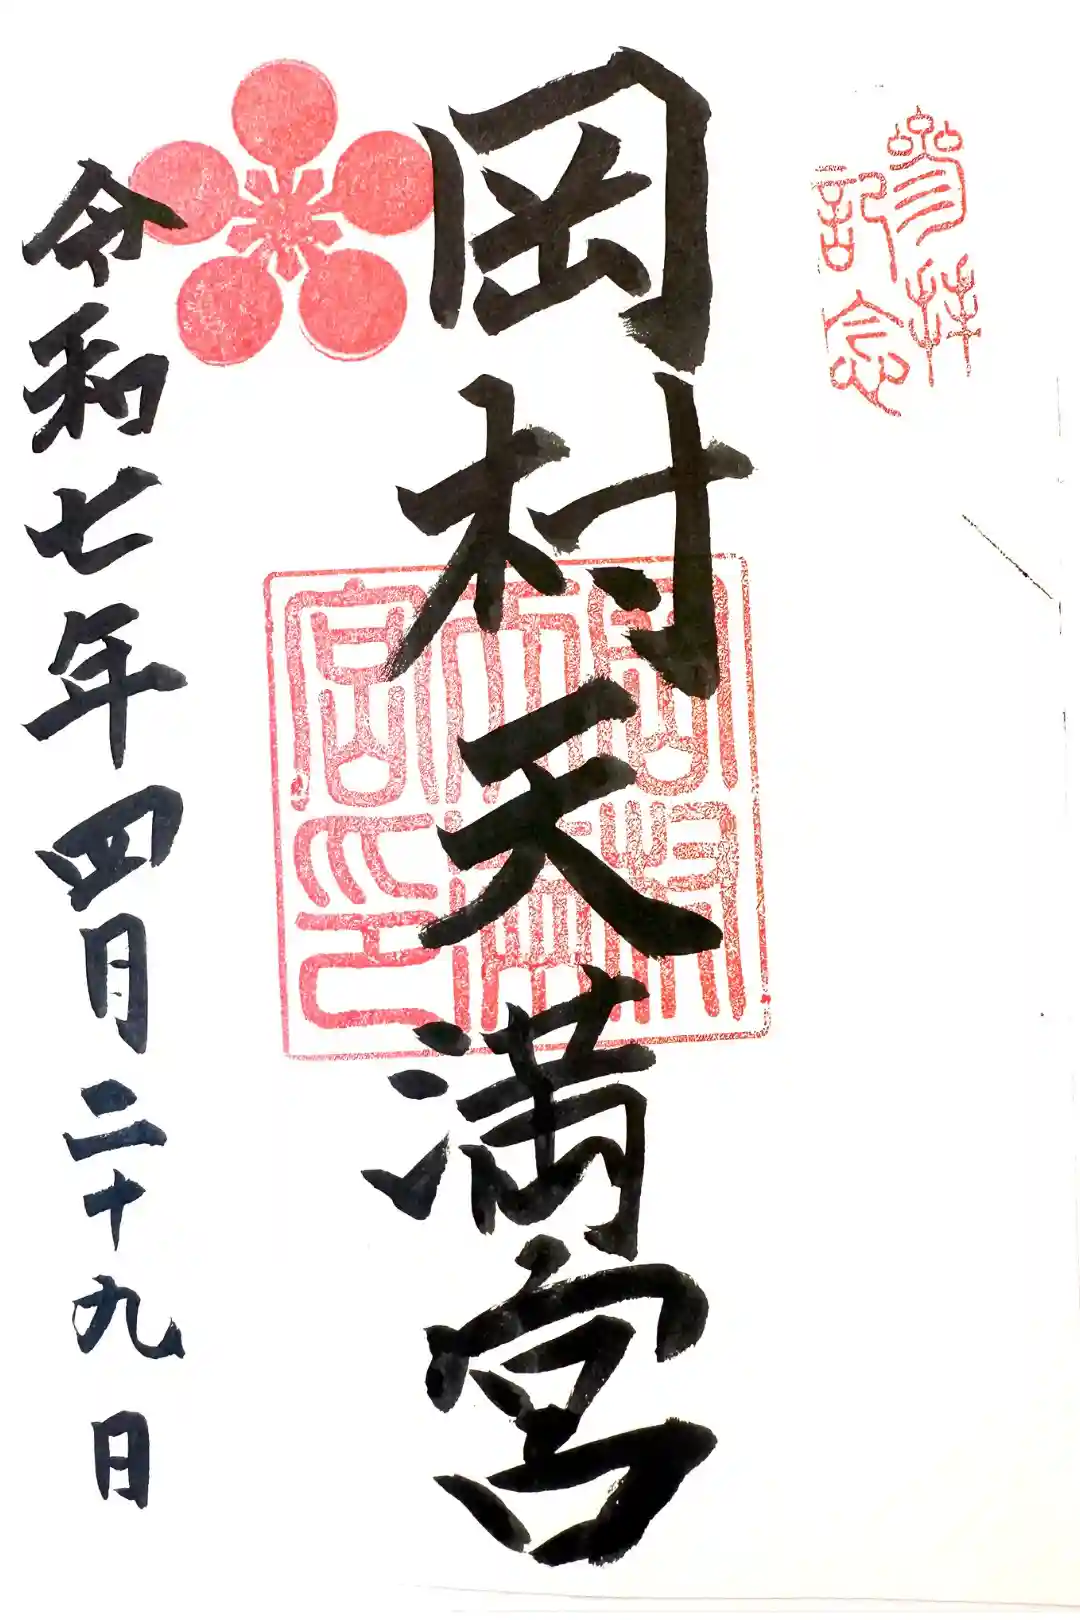 參拝
記念
岡村天満宮
岡村
天満
宮印
令和七年四月二十九日